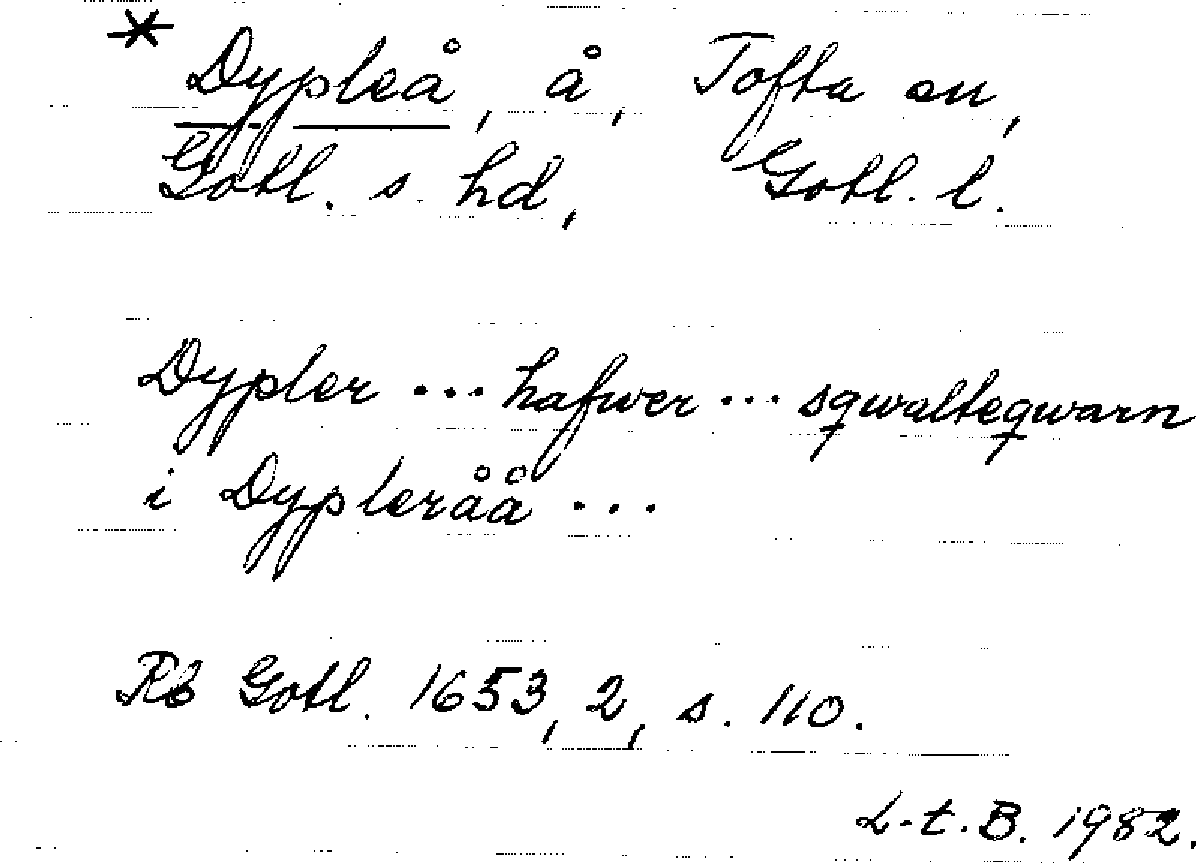 * Dypleå, å, Tofta sn,
Gotl. s. hd, Gotl. l.
Dypler ... hafwer ... sqwalteqwarn
i Dypleråå ...
Rb Gotl. 1653, 2, s. 110.
L-t. B. 1982.